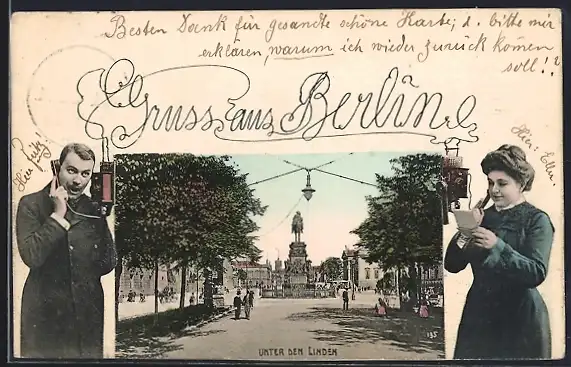 Besten Dank für gesandte schöne Karte; d. bitte mir
erklären, warum ich wieder zurück komen
soll!?
Gruss aus Berlin
Hier Fritz!
Hier: Ella.
195
UNTER DEN LINDEN